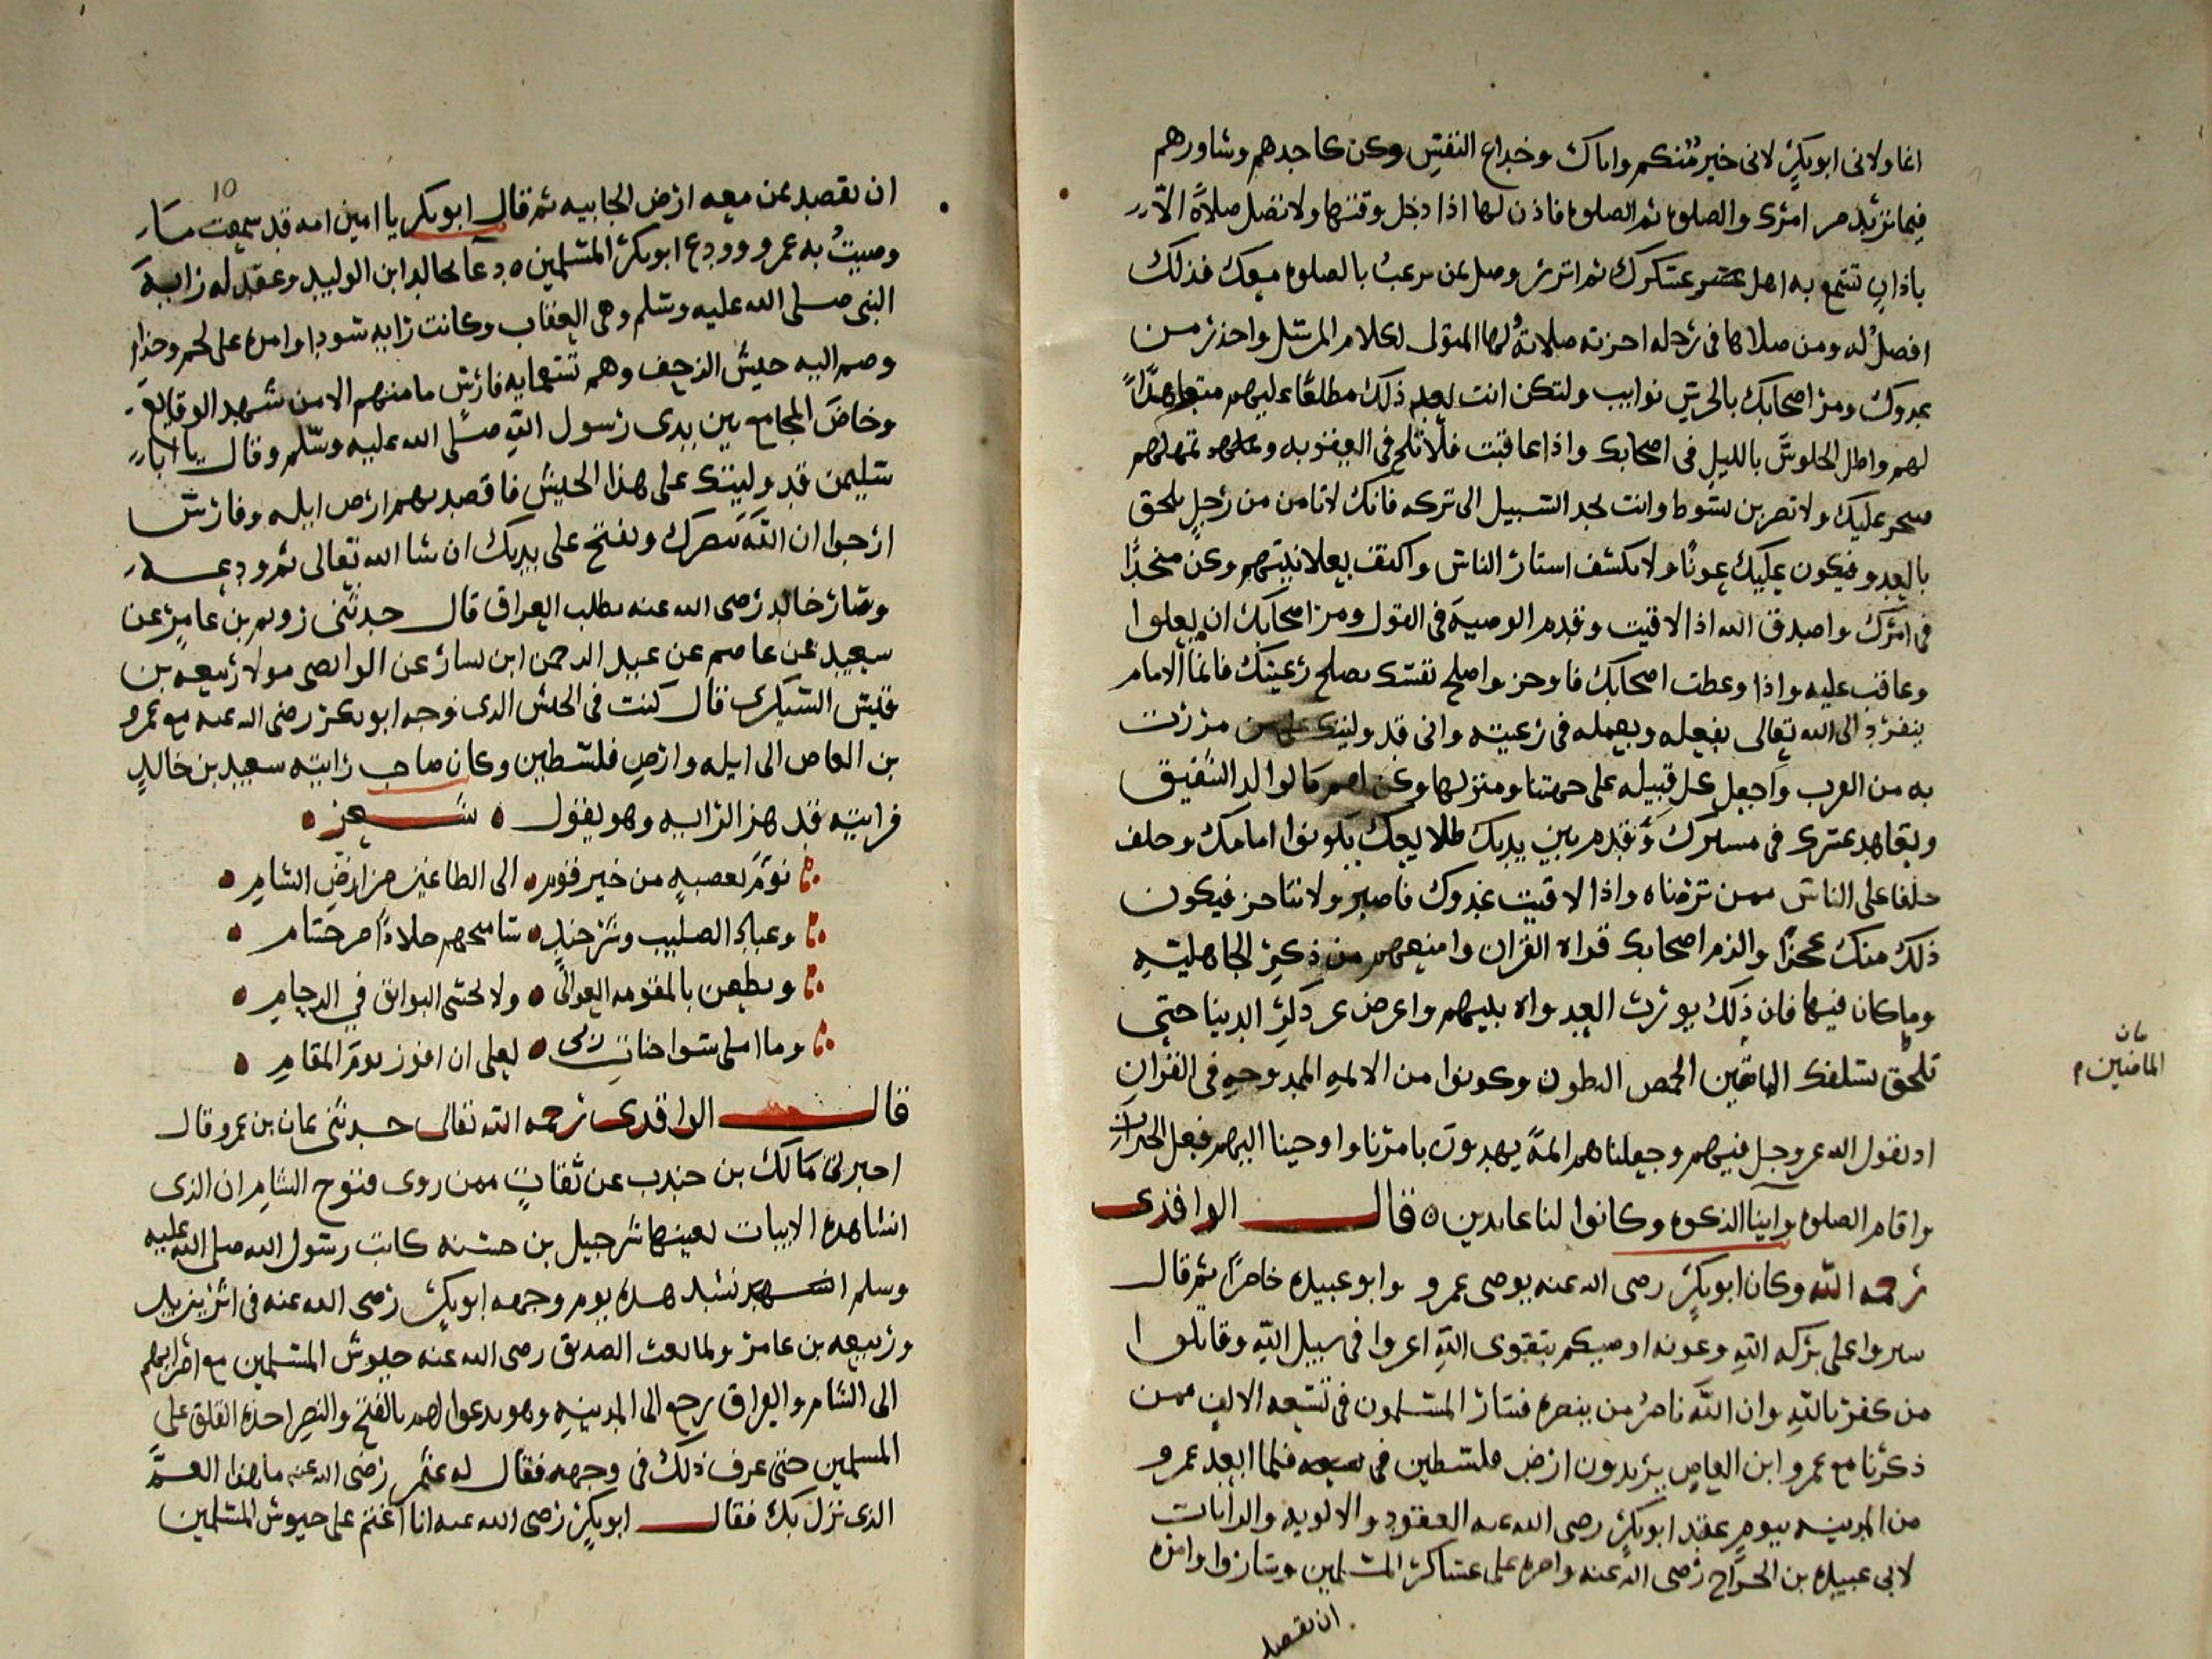 انما ولانى ابو بكرٍ لانى خير منكم واياك وخداع النفس وكن كاحدهم وشاورهم
فيما تريد من امرك والصلوه ثم الصلوه فاذن لها اذا دخل وقتها ولا تصل صلاةً الا
باذانٍ تسمع به اهل عسكرك ثم ابرز وصل بمن رغب بالصلوه معك فذلك
افضلُ له ومن صلاها فى رحله اجزته صلاتهُ واحذر من
عدوك ومر اصحابك بالحرس ولتكن انت بعد ذلك مطلعًا عليهم
لهم واطل الجلوس بالليل فى اصحابك واذا عاقبت فلا تلح فى العقوبه
عليك ولا تضربن بسوط وانت تجد السبيل الى تركه فانك لا تامن من رجلٍ يلحق
بالعدو فيكون عليك عونًا ولا تكشف استار الناس واكتف بعلانيتهم وكن مجدًّا
فى امرك واصدق الله اذا لاقيت وقدم الوصية فى القول ومر اصحابك ان
وعاقب عليه واذا وعظت اصحابك فاوجز واصلح نفسك تصلح رعيتك فانما الامام
ينفرد الى الله تعالى بفعله وبعمله فى رعيته وانى قد وليتك على من مررت
به من العرب واجعل كل قبيله على حميتها ومنزلها وكن لهم كالوالد الشفيق
وتعاهد عسكرك فى مسيرك وقدم بين يديك طلايعك يكونوا امامك وخلف
خلفا على الناس ممن ترضاه واذا لاقيت عدوك فاصبر ولا تتاخر فيكون
ذلك منك عجزًا والزم اصحابك قراه القران وامنعهم من ذكر الجاهليّهِ
وما كان فيها فان ذلك يورث العداوه بينهم واعرض عن الدنيا حتى
تلحق بسلفك الخمص البطون وكونوا من الائمهِ الممدوحهِ فى القران
اذ يقول الله عز وجل فيهم وجعلناهم ائمةً يهدون بامرنا واوحينا اليهم فعل الخيرات
واقام الصلوه وايتا الزكوه وكانوا لنا عابدين ٥ قال الواقدى
رحمه الله وكان ابو بكرٍ رضى الله عنه يوصى عمرو وابو عبيده حاضرًا ثم قال
سيروا على بركه اللهِ وعونه اوصيكم بتقوى اللهِ اغزوا فى سبيل اللهِ وقاتلوا
من كفر باللهِ وان اللهَ ناصرُ من ينصره فسار المسلمون فى تسعه الاف ممن
ذكرنا مع عمرو ابن العاصِ يريدون ارض فلسطين فلما ابعد عمرو
من المدينه بيومٍ عقد ابو بكرٍ رضى الله عنه العقود والالويه والرايات
لابى عبيده بن الجرّاح رضى الله عنه وامره على عساكر المسلمين وساروا وامره
ان يقصد
الماضين
١٥
ان يقصد بمن معه ارض الجابيه ثم قال ابو بكر يا امين امه قد سمعت ما
وصيتُ به عمرو وودع ابو بكر المسلمين ٥ دعا بخالد ابن الوليد وعقد له رايه
النبى صلى الله عليه وسلم وهى العقاب وكانت رايه سودا وامره على لخم وجذام
وضم اليه جيش الزحف وهم تسعمايه فارس ما منهم الا من شهد الوقايع
وخاض المجامع بين يدى رسول اللهِ صلى الله عليه وسلم وقال يا ابا
سليمن قد وليتك على هذا الجيش فاقصد بهم ارض ايله وفارس
ارجوا ان اللهَ ينصرك ويفتح على يديك ان شا الله تعالى ثم ودعه
وسار خالد رضى الله عنه يطلب العراق قال حدثنى رويم بن عامر عن
سعيد عن عاصم عن عبد الرحمن ابن يسار عن الواقصى مولا ربيعه بن
قيس اليشكرى قال كنت فى الجيش الذى وجه ابو بكر رضى الله عنه مع عمرو
بن العاص الى ايله وارض فلسطين وكان صاحب رايته سعيد بن خالدٍ
فرايته قد هز الرايه وهو يقول شعر
نؤمُ بعصبهٍ من خير قومٍ الى الطاغين من ارضِ الشامِ
وعبادِ الصليب حسام
ونطعن بالمقومه العوالى ولا نخشى البوايق في الزحامِ
وما املى سوا جنات ربى لعلى ان افوز يوم المقامِ
قال الواقدى رحمه الله تعالى حدثنى عمان بن عمرو قال
اخبرنى مالك بن جندب عن ثقاتٍ ممن روى فتوح الشامِ ان الذى
انشا هذه الابيات بعينها شرحبيل بن حسنه كاتب رسول الله صلى الله عليه
وسلم يوم وجهه ابو بكرٍ رضى الله عنه فى اثر يزيد
وربيعه بن عامر ولما بعث الصديق رضى الله عنه جيوش المسلمين مع امرايهم
الى الشام والعراق رجع الى المدينهِ وهو يدعوا لهم بالفتح والنصرِ اخذه القلق على
المسلمين حتى عرف ذلك فى وجهه فقال له عثمن رضى الله عنه ما هذا الغمَّ
الذى نزل بك فقال ابو بكرٍ رضى الله عنه انا اغتم على جيوش المسلمين